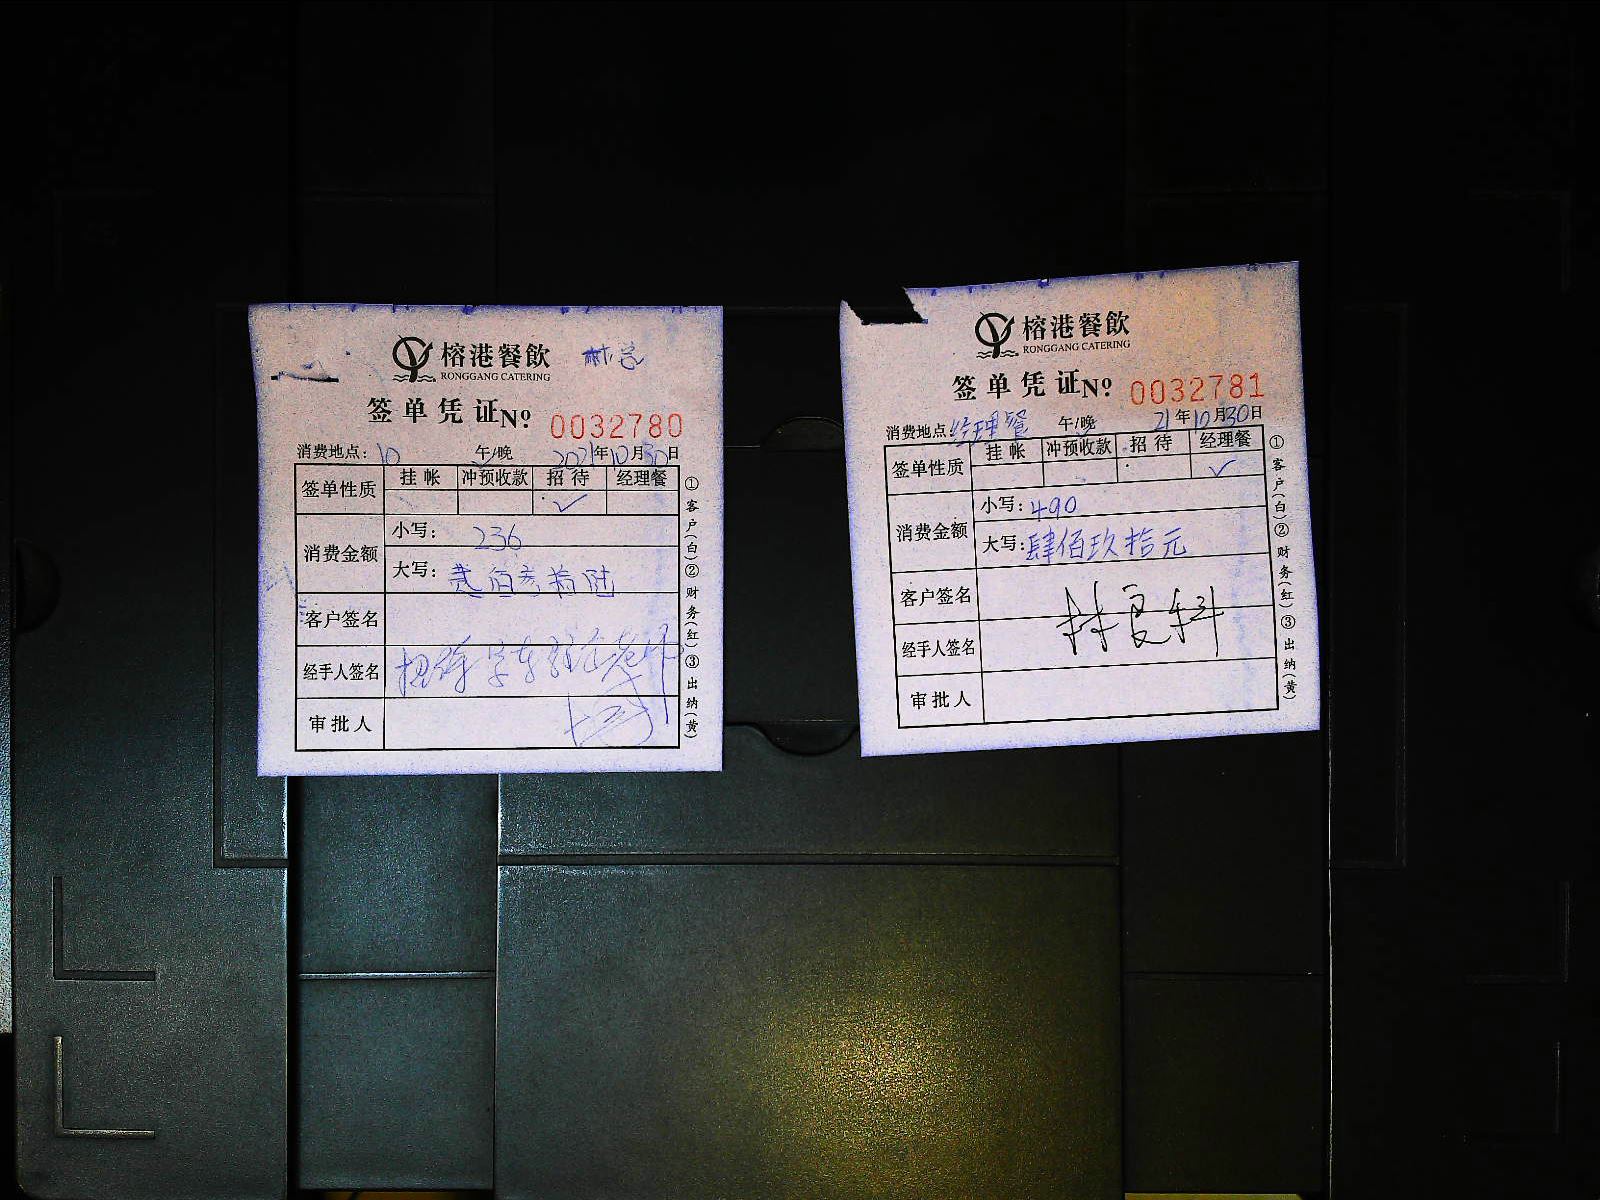 榕港餐飲 林总
RONGGANG CATERING
签单凭证 Nº 0032780
消费地点：10 午/晚 2021年10月30日
签单性质 挂帐 冲预收款 招待 经理餐
✓
消费金额 小写： 236
大写： 贰佰叁拾陆
客户签名
经手人签名
审批人
①客户(白)②财务(红)③出纳(黄)
榕港餐飲
RONGGANG CATERING
签单凭证 Nº 0032781
消费地点：经理餐 午/晚 21年10月30日
签单性质 挂帐 冲预收款 招待 经理餐
✓
消费金额 小写：490
大写：肆佰玖拾元
客户签名
林良科
经手人签名
审批人
①客户(白)②财务(红)③出纳(黄)